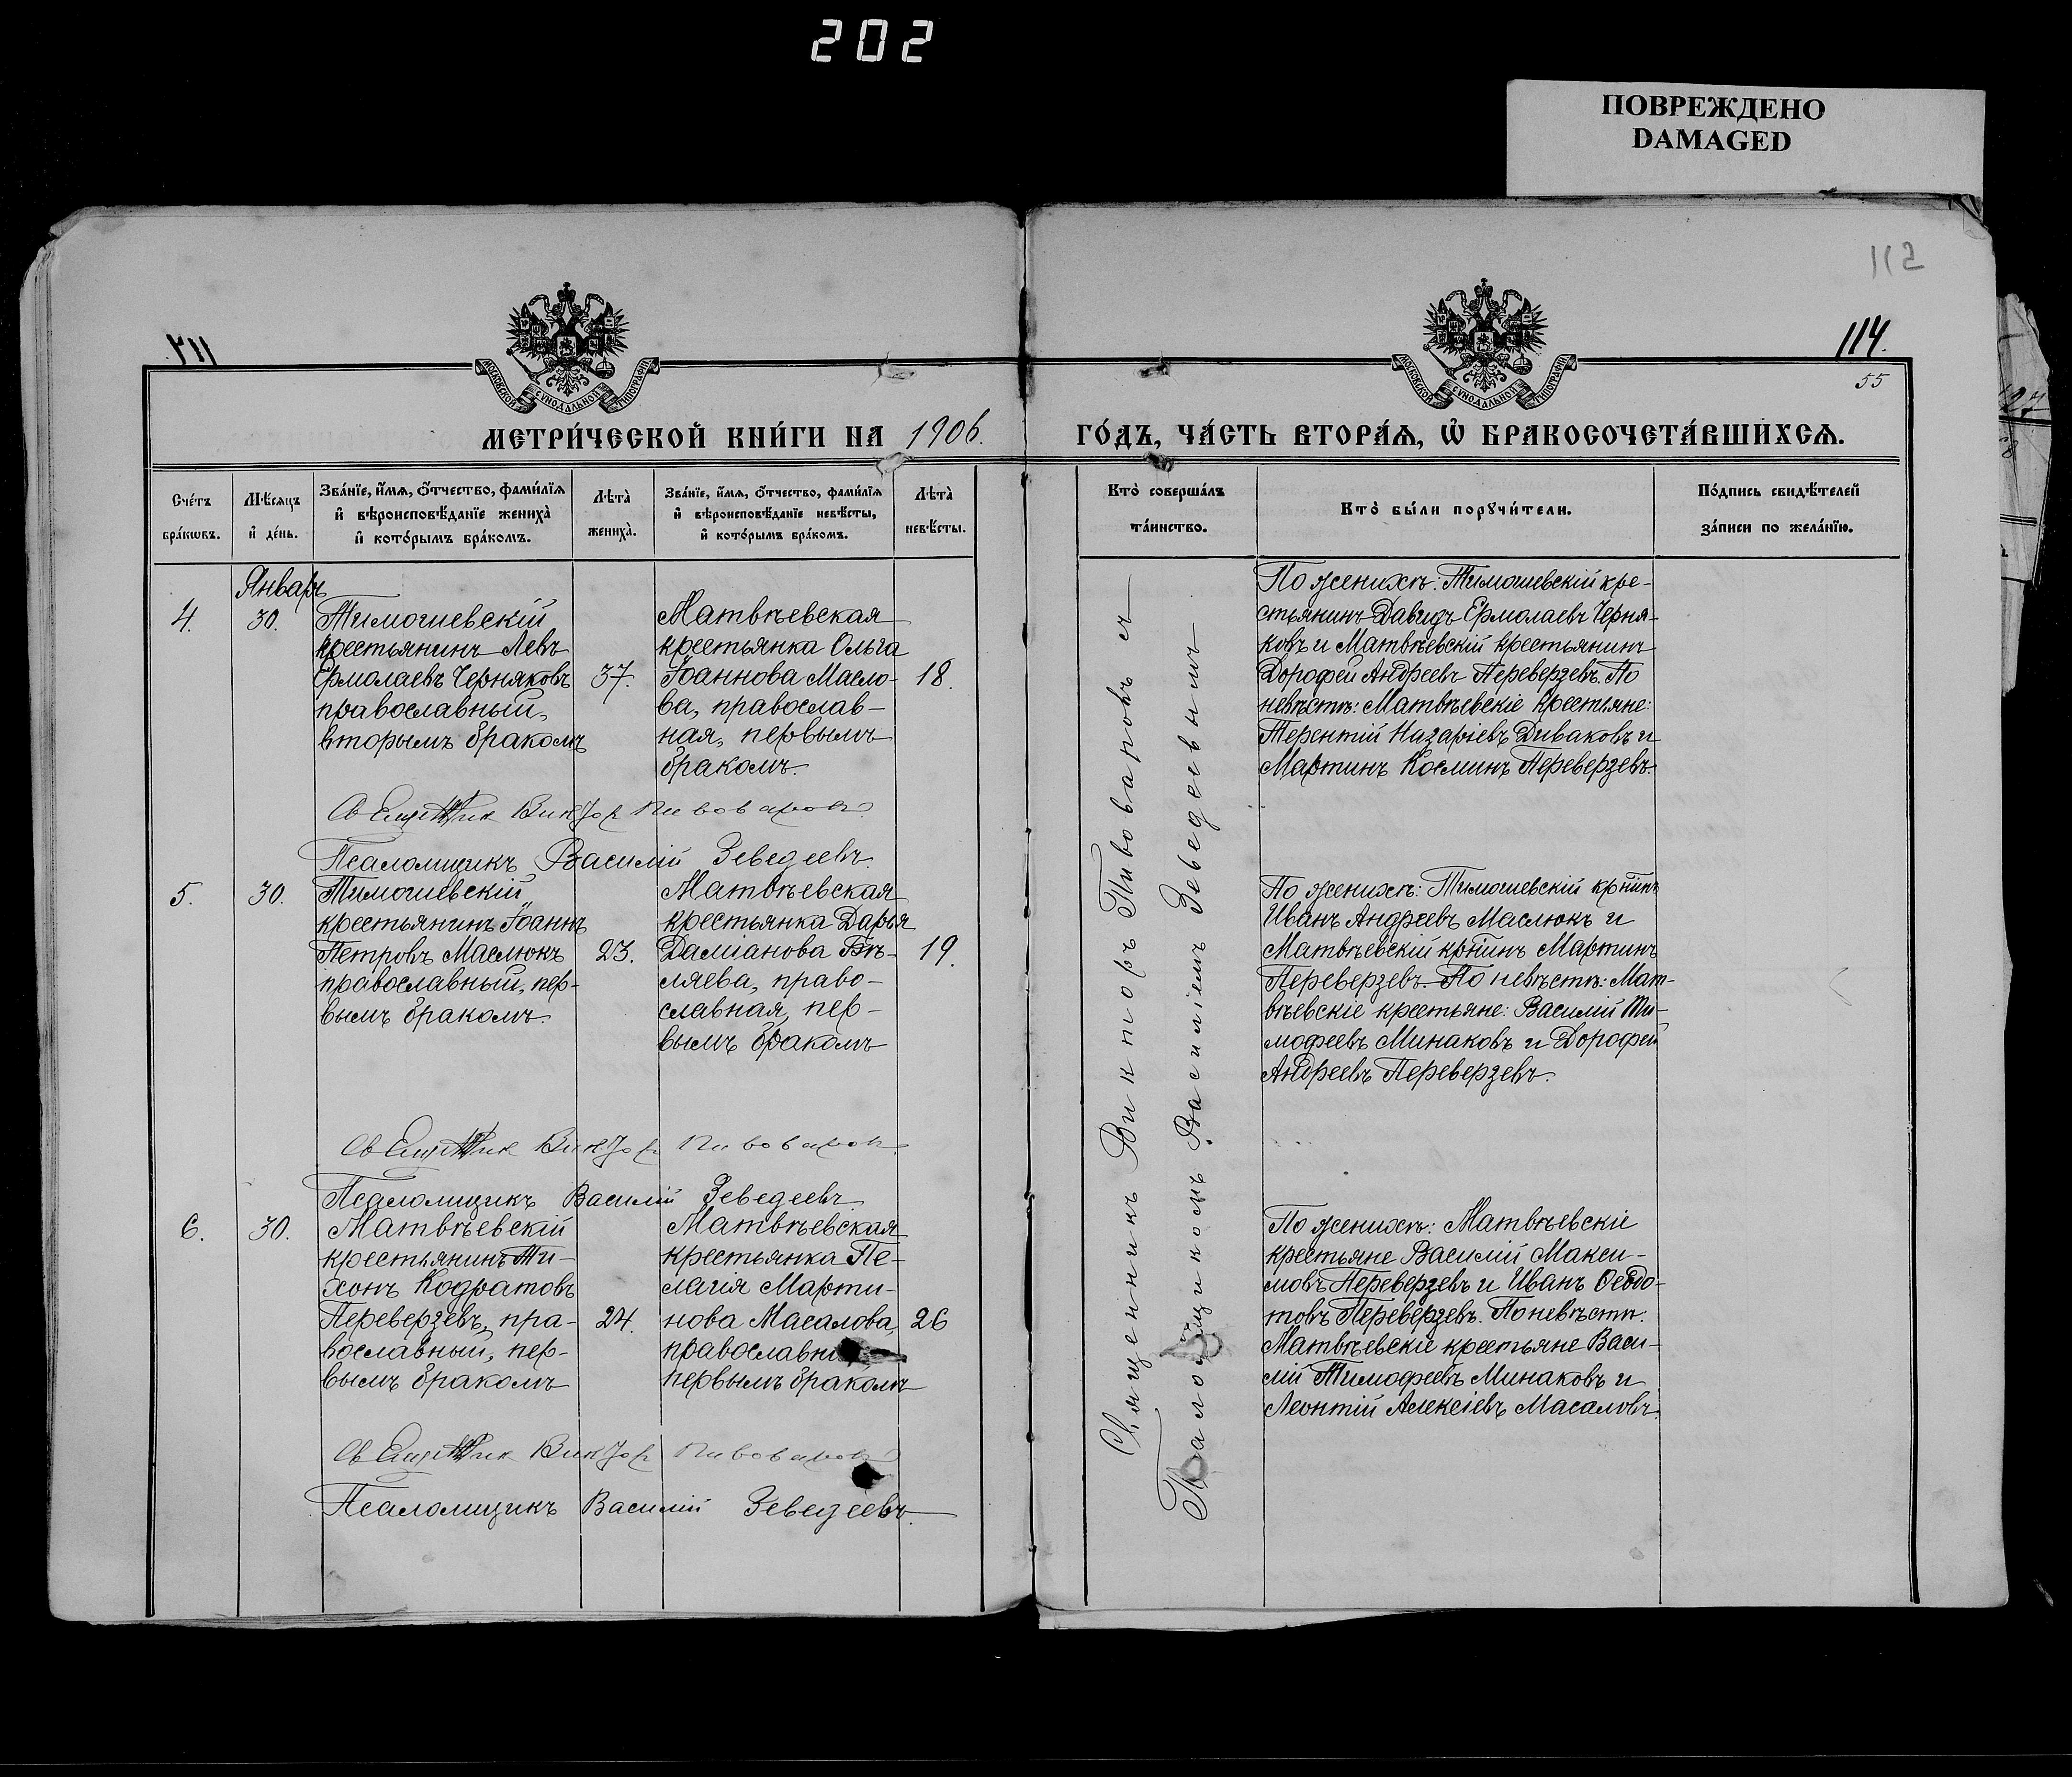 202
ПОВРЕЖДЕНО
DAMAGED
112
114.
55
МОСКОВСКОЙ СУНОДАЛЬНОЙ ТИПОГРАФІИ
МОСКОВСКОЙ СУНОДАЛЬНОЙ ТИПОГРАФІИ
МЕТРИ́ЧЕСКОЙ КНИ́ГИ НА 1906.
ГО́ДЪ, ЧА́СТЬ ВТОРА́Ѧ, Ѡ҆ БРАКОСОЧЕТА́ВШИХСѦ.
Сче́тъ
бра́кѡвъ.
Мѣ́сяцъ
и҆ де́нь.
Зва́нїе, и҆́мѧ, ѻ҆́тчество, фами́лїѧ
и҆ вѣроисповѣ́данїе жениха̀
и҆ кото́рымъ бра́комъ.
Лѣ́та̀
жениха̀.
Зва́нїе, и҆́мѧ, ѻ҆́тчество, фами́лїѧ
и҆ вѣроисповѣ́данїе невѣ́сты,
и҆ кото́рымъ бра́комъ.
Лѣ́та̀
невѣ́сты.
Кто̀ соверша́лъ
та́инство.
Кто̀ бы́ли порꙋчи́тели.
По́дпись свидѣ́телей
за́писи по жела́нїю.
Январь
4.
30.
Тимошевскій
крестьянинъ Левъ
Ермолаевъ Черняковъ
православный,
вторымъ бракомъ
37.
Матвѣевская
крестьянка Ольга
Іоаннова Масло-
ва, православ-
ная, первымъ
бракомъ.
18.
По женихѣ: Тимошевскій кре-
стьянинъ Давидъ Ермолаевъ Черня-
ковъ и Матвѣевскій крестьянинъ
Дорофей Андреевъ Переверзевъ. По
невѣстѣ: Матвѣевскіе крестьяне:
Терентій Назаріевъ Диваковъ и
Мартинъ Косминъ Переверзевъ.
Священник Виктор Пивоваров
Псаломщикъ Василій Зеведеевъ.
5.
30.
Тимошевскій
крестьянинъ Іоаннъ
Петровъ Маслюкъ
православный, пер-
вымъ бракомъ.
23.
Матвѣевская
крестьянка Дарья
Даміанова Бѣ-
ляева, право-
славная, пер-
вымъ бракомъ
19.
По женихѣ: Тимошевскій кр̃нинъ
Иванъ Андреевъ Маслюкъ и
Матвѣевскій кр̃нинъ Мартинъ
Переверзевъ. По невѣстѣ: Мат-
вѣевскіе крестьяне: Василій Ти-
мофеевъ Минаковъ и Дорофей
Андреевъ Переверзевъ.
Священник Виктор Пивоваров
Псаломщикъ Василій Зеведеевъ
6.
30.
Матвѣевскій
крестьянинъ Ти-
хонъ Кодратовъ
Переверзевъ, пра-
вославный, пер-
вымъ бракомъ
24.
Матвѣевская
крестьянка Пе-
лагія Марти-
нова Масалова,
православна
первымъ бракомъ
26
По женихѣ: Матвѣевскіе
крестьяне Василій Макси-
мовъ Переверзевъ и Иванъ Ѳедо-
товъ Переверзевъ. По невѣстѣ:
Матвѣевскіе крестьяне Васи-
лій Тимофеевъ Минаковъ и
Леонтій Алексіевъ Масаловъ.
Священник Виктор Пивоваров
Псаломщикъ Василій Зеведеевъ.
Священникъ Викторъ Пивоваровъ съ
Псаломщикомъ Василіемъ Зеведеевымъ